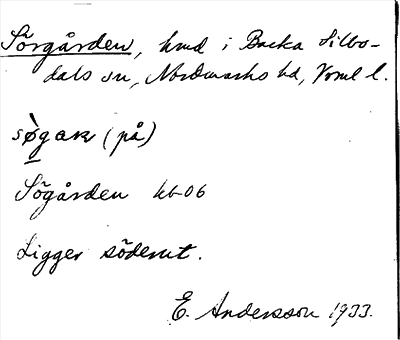 Sörgården, hmd i Backa Silbo-
dals sn, Nordmarks hd, Vrml l.
søgaɴ (på)
Sögården kb 06
Ligger söderut.
E. Andersson 1933.